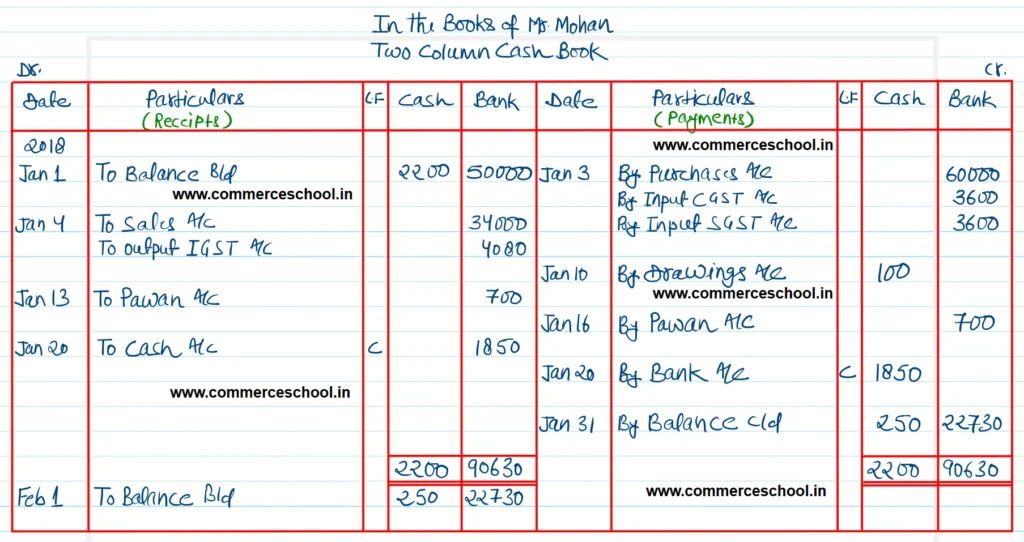 In the Books of Mr. Mohan
Two Column Cash Book
Dr. Cr.
Date Particulars LF Cash Bank Date Particulars LF Cash Bank
(Receipts) (Payments)
2018 www.commerceschool.in
Jan 1 To Balance B/d 2200 50000 Jan 3 By Purchases A/c 60000
www.commerceschool.in By Input CGST A/c 3600
Jan 4 To Sales A/c 34000 By Input SGST A/c 3600
To output IGST A/c 4080
Jan 10 By Drawings A/c 100
Jan 13 To Pawan A/c 700 www.commerceschool.in
Jan 16 By Pawan A/c 700
Jan 20 To Cash A/c C 1850
Jan 20 By Bank A/c C 1850
www.commerceschool.in
Jan 31 By Balance c/d 250 22730
2200 90630 2200 90630
Feb 1 To Balance B/d 250 22730 www.commerceschool.in